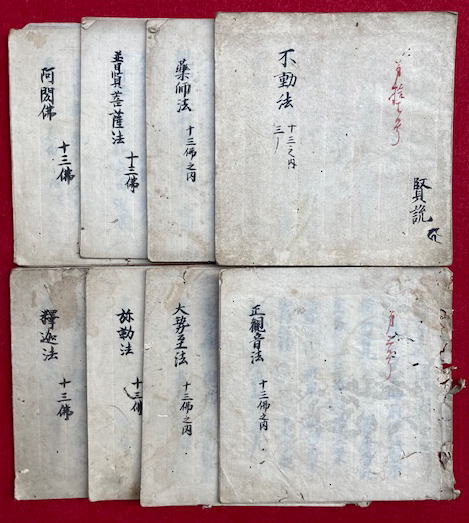 不動法
十三之内
賢
藥師法
十三佛之内
普賢菩薩法
十三佛
阿閦佛
十三佛
正觀音法
十三佛之内
大勢至法
十三佛之内
弥勒法
十三佛
釋迦法
十三佛